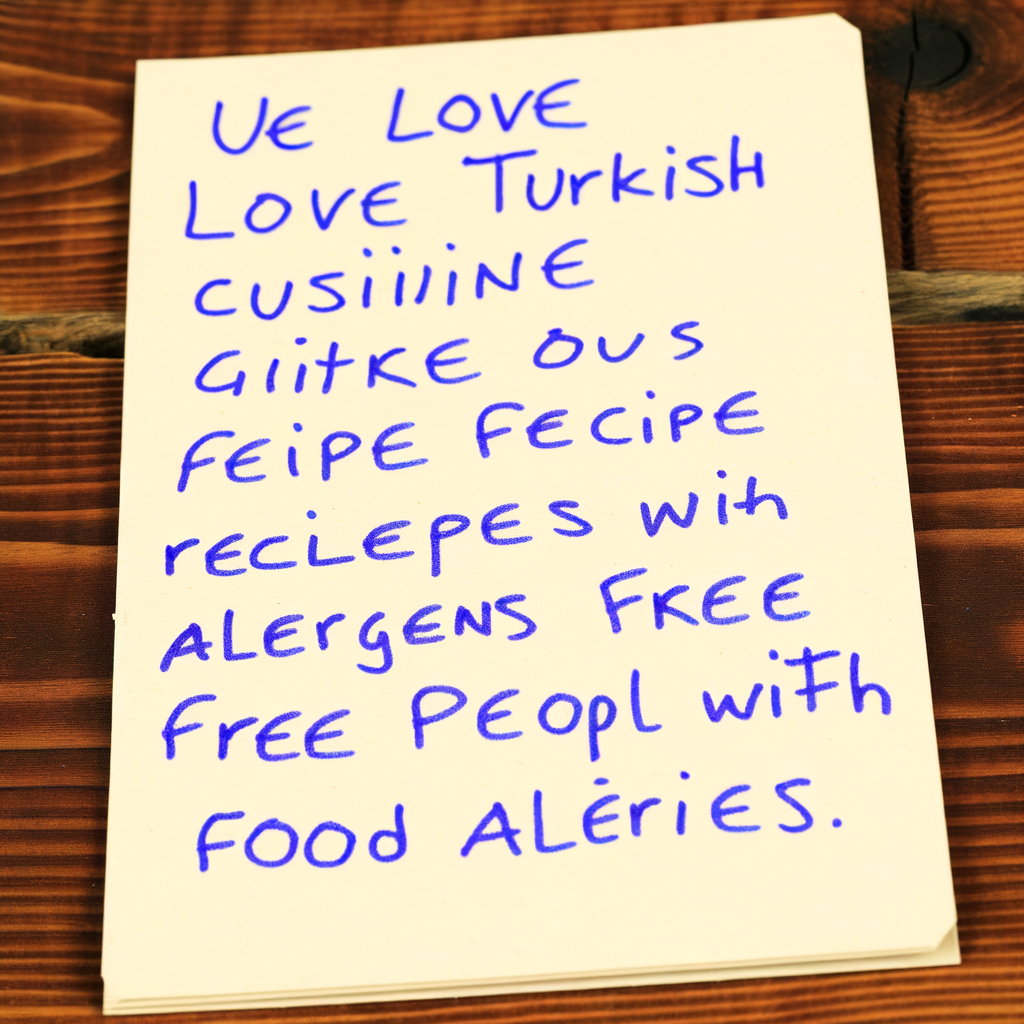 UE LOVE
LOVE TurkisH
CUSiiIiNE
GIitKE OUS
FEiPE FECiPE
rECiLEPES wih
ALErgENS FKEE
FrEE PEOpl with
FOOd ALĖriES.